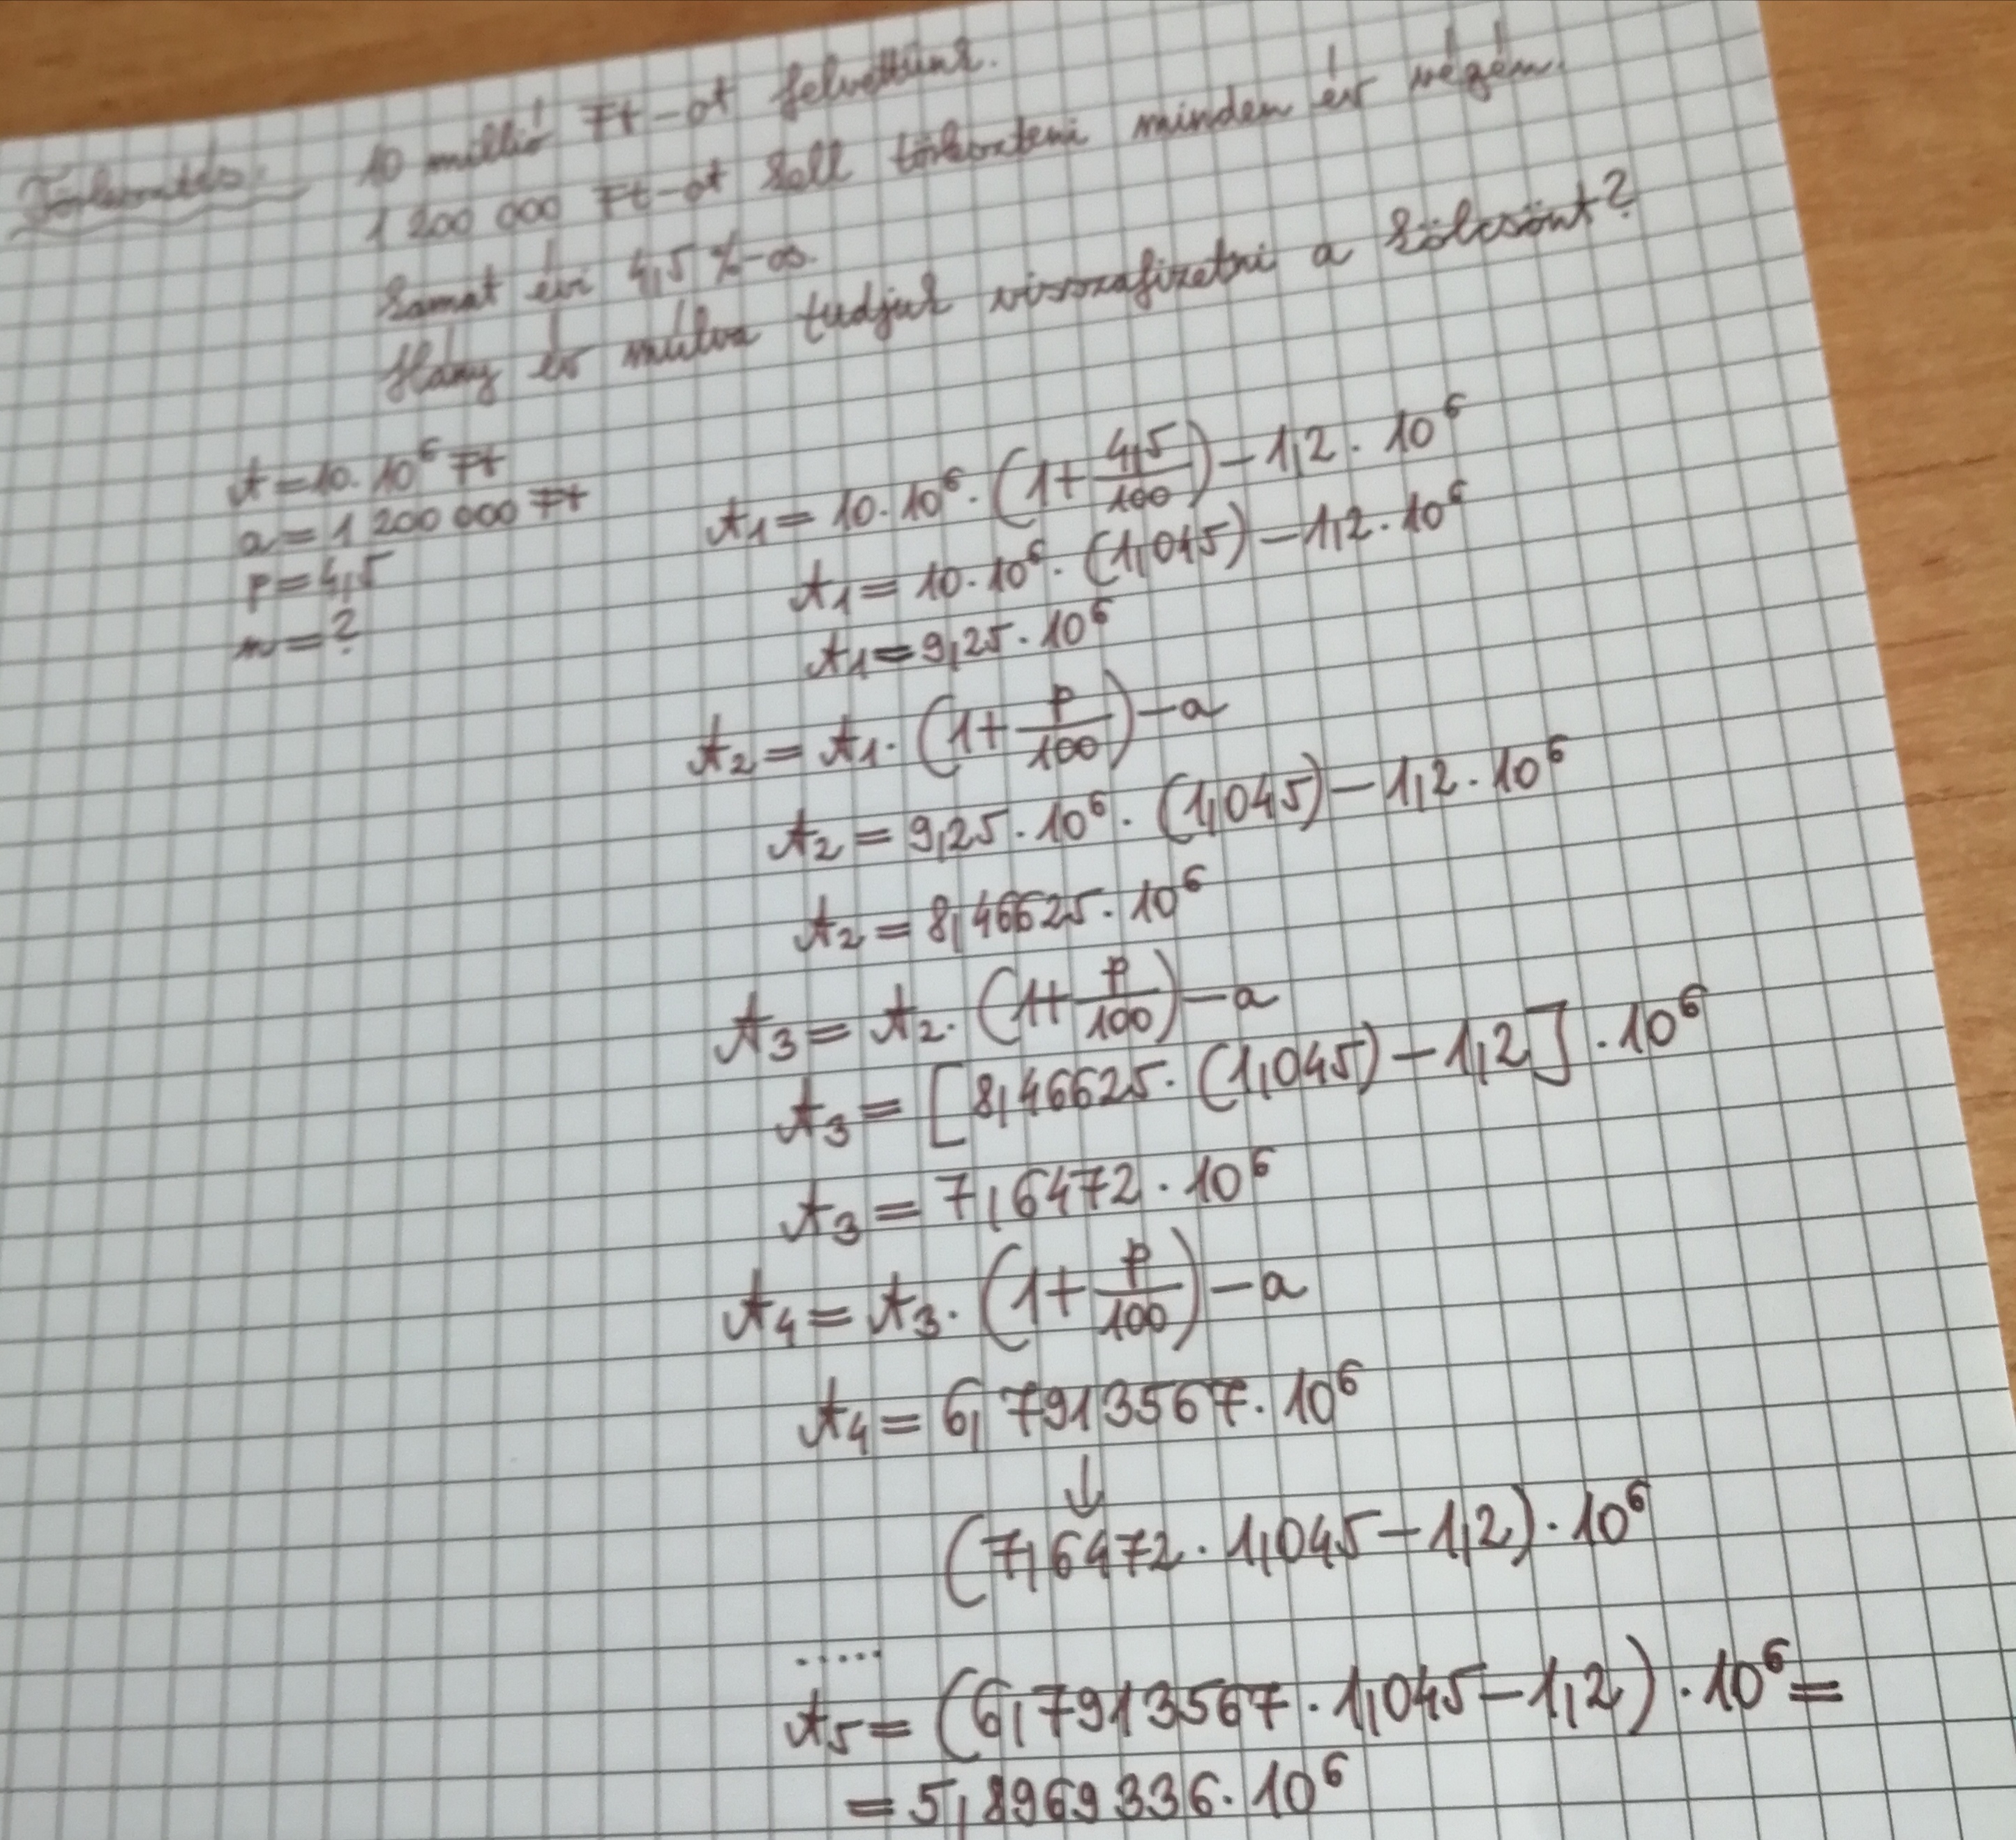 Törlesztés: 10 millió Ft-ot felvettünk.
1 200 000 Ft-ot kell törleszteni minden év végén.
Kamat évi 4,5 %-os.
Hány év múlva tudjuk visszafizetni a kölcsönt?
A = 10 · 10⁶ Ft
a = 1 200 000 Ft
p = 4,5
n = ?
A₁ = 10 · 10⁶ · (1 + 4,5/100) - 1,2 · 10⁶
A₁ = 10 · 10⁶ · (1,045) - 1,2 · 10⁶
A₁ = 9,25 · 10⁶
A₂ = A₁ · (1 + p/100) - a
A₂ = 9,25 · 10⁶ · (1,045) - 1,2 · 10⁶
A₂ = 8,46625 · 10⁶
A₃ = A₂ · (1 + p/100) - a
A₃ = [8,46625 · (1,045) - 1,2] · 10⁶
A₃ = 7,6472 · 10⁶
A₄ = A₃ · (1 + p/100) - a
A₄ = 6,7913567 · 10⁶
↓
(7,6472 · 1,045 - 1,2) · 10⁶
.....
A₅ = (6,7913567 · 1,045 - 1,2) · 10⁶ =
= 5,8969336 · 10⁶